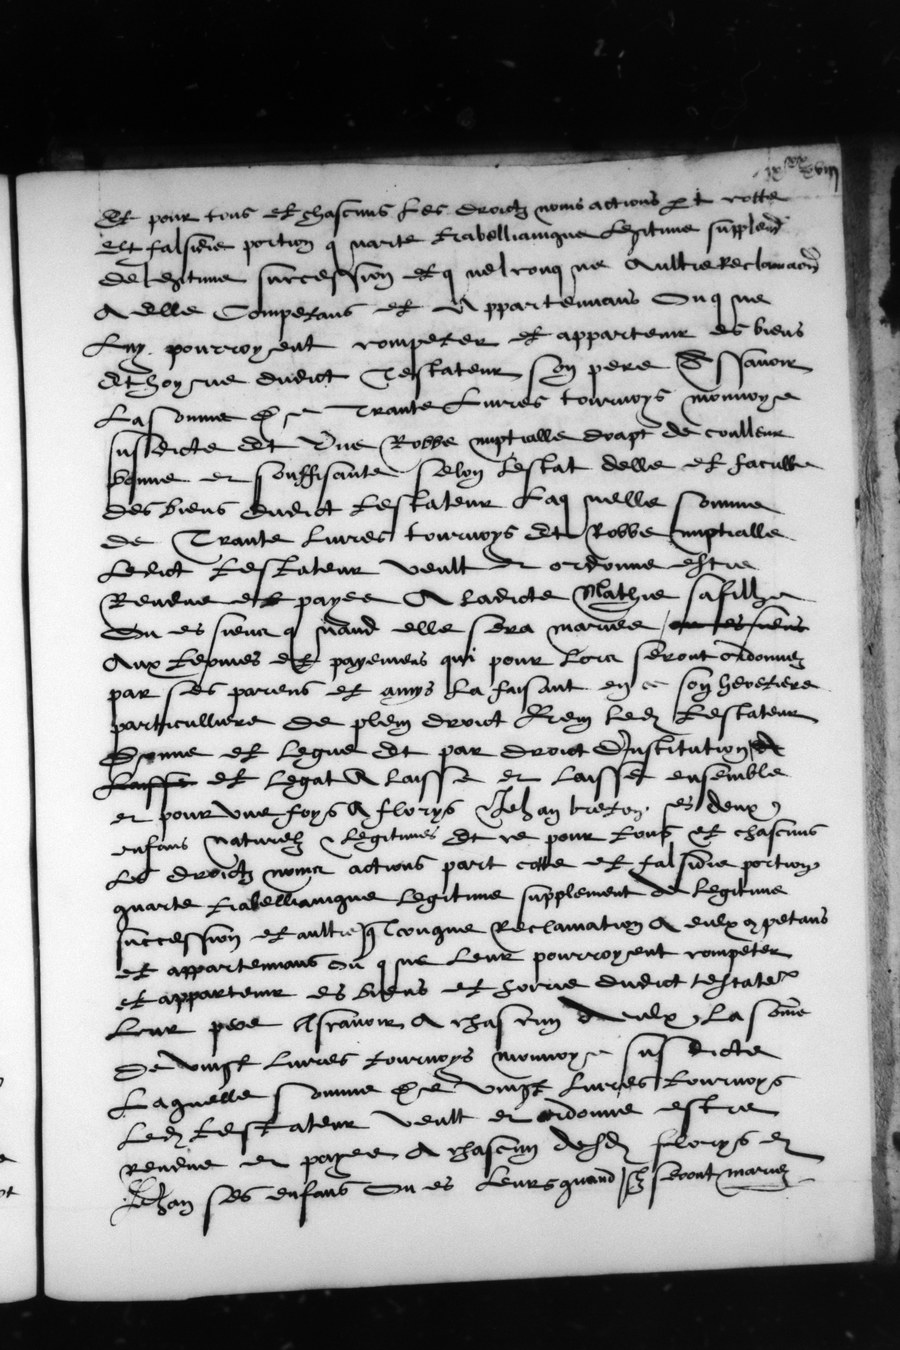 Et pour tous et chascuns les droictz noms actions part cotte
et falsidie portion quarte trabellianique legitime supplem̃t
de legitime succession et quelconque aultre reclamac̃on
A elle Competans et Appartenans Ou que
Luy pourroyent competer et appartenir es biens
et hoyrie dudict Testateur son pere Assavoir
La somme de Trante Livres tournoys monnoye
susdicte et Une Robbe nuptialle drapt de coulleur
bonne et souffisante selon l'estat d'elle et faculte
des biens dudict testateur Laquelle somme
de Trante Livres tournoys et Robbe nuptialle
Ledict testateur veult et ordonne estre
Rendue et payee A ladicte Mathie sa filhe
Ou es siens quand elle sera mariee ou es siens
Aux termes et payemens qui pour lors seront ordonnez
par ses parens et amys la faisant en ce son heretiere
particulliere de plein droict Item led testateur
Donne et legue et par droict d'Institution de
Laisse et legat A laisse et laisse ensemble
et pour une foys A florys Jehan breton ses deux
enfans naturelz legitimes et ce pour tous et chascuns
Les droictz noms actions part cotte et falsidie portion
quarte trabellianique legitime supplement de legitime
succession et aultre qlconque Reclamation A eulx cõpetans
et appartenans Ou que leur pourroyent competer
et appartenir es biens et hoirie dudict testateur
Leur pere Ascavoir A chascun d'eulx La some
de vingt livres tournoys monnoye susdicte
Laquelle somme de vingt livres tournoys
Led testateur veult et ordonne estre
Rendue et payee A chascun desd florys et
Jehan ses enfans Ou es leurs quand ilz seront mariez